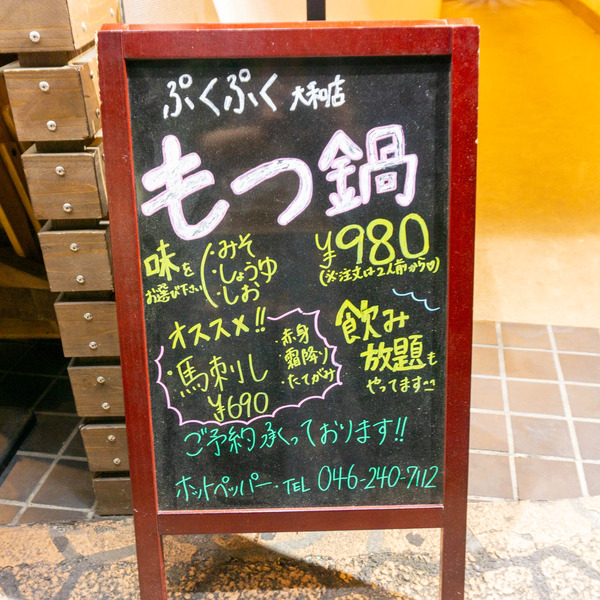 ぷくぷく 大和店
もつ鍋
味を
お選び下さい
・みそ
・しょうゆ
・しお
¥980
(※注文は2人前から♡)
オススメ!!
・馬刺し
¥690
・赤身
・霜降り
・たてがみ
飲み
放題も
やってます
ご予約承っております!!
ホットペッパー・TEL 046-240-7112